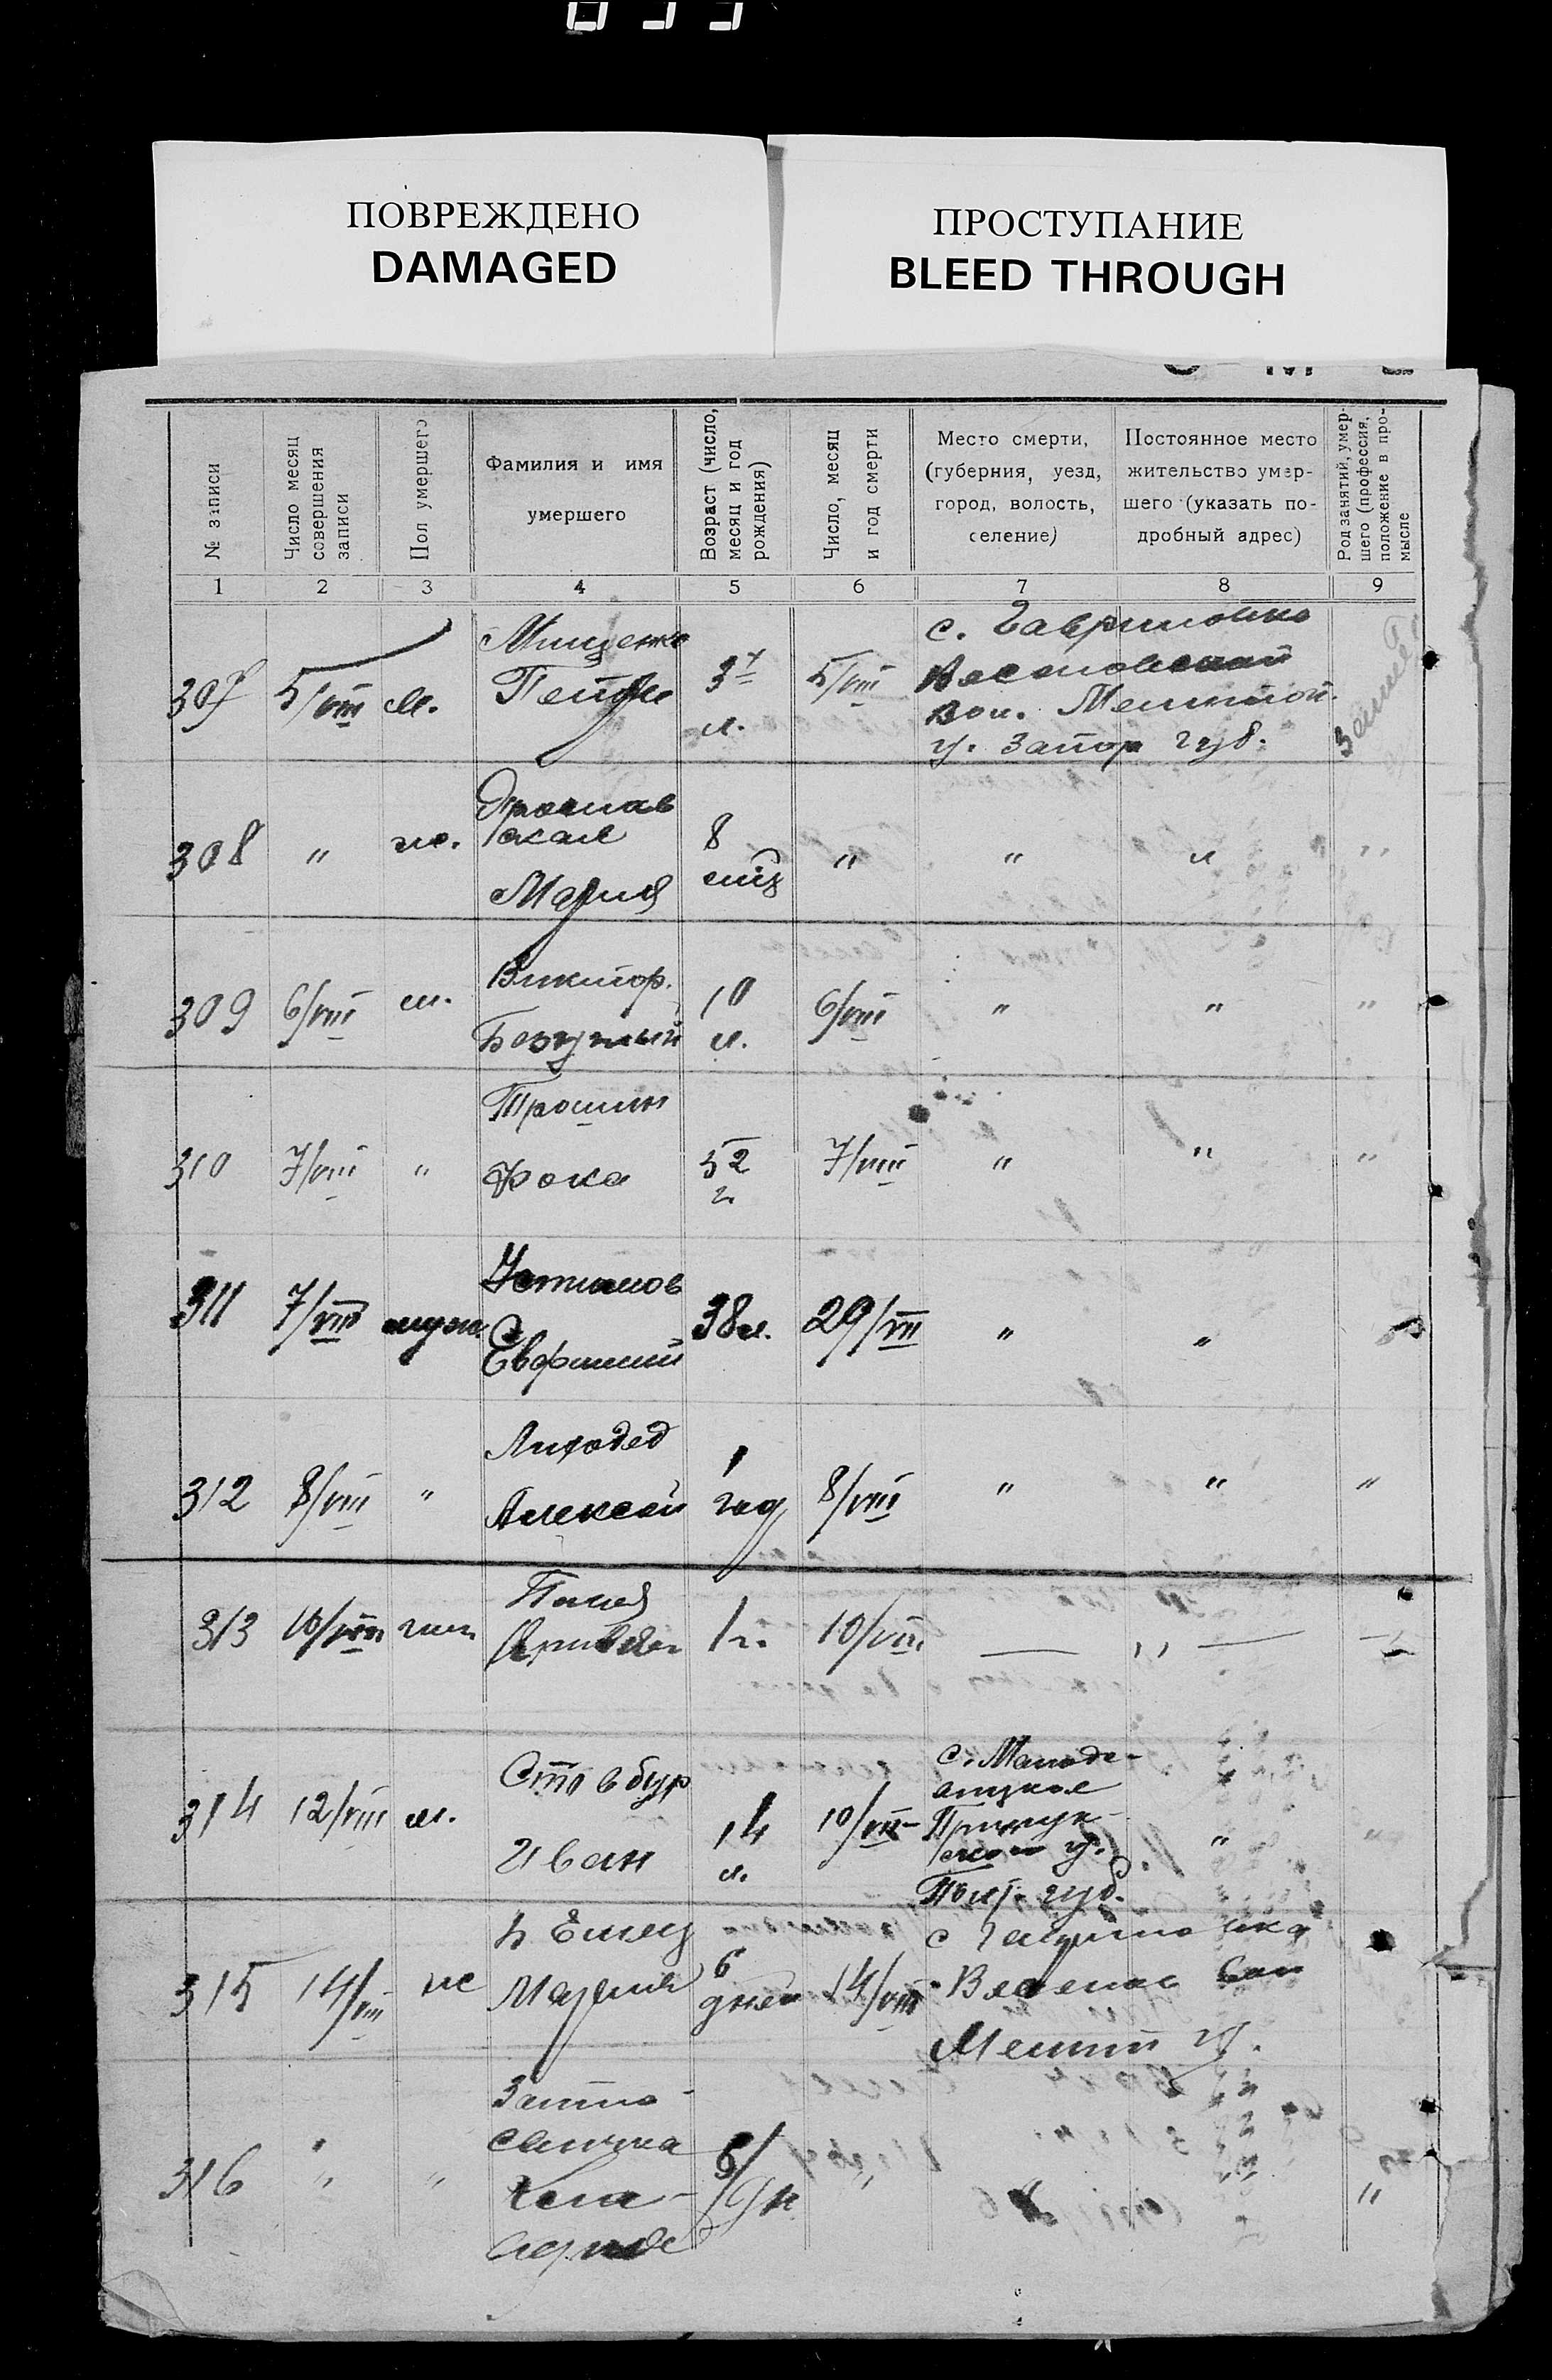 ПОВРЕЖДЕНО
DAMAGED
ПРОСТУПАНИЕ
BLEED THROUGH
№ записи
Число месяц
совершения
записи
Пол умершего
Фамилия и имя
умершего
Возраст (число,
месяц и год
рождения)
Число, месяц
и год смерти
Место смерти,
(губерния, уезд,
город, волость,
селение)
Постоянное место
жительство умер-
шего (указать по-
дробный адрес)
Род занятий, умер-
шего (профессия,
положение в про-
мысле
1 2 3 4 5 6 7 8 9
307 5/VIII м.
Мищенко
Петр
37
л.
5/VIII
с. Гавриловка
Веселовской
вол. Мелитой.
у. Запор губ.
308 " ж.
Мария
8
міц
" " " "
309 6/VIII м.
Виктор
Безумный
10
л.
6/VIII " " "
310 7/VIII "
Трошин
Фока
52
г.
7/VIII " " "
311 7/VIII муж
Устимов
38 л. 29/VII " "
312 8/VIII "
Лиходед
Алексей
1
год
8/VIII " " "
313 10/VIII
1 г. 10/VIII — " —
314 12/VIII м.
Стовбур
Иван
14
л.
10/VII
у.
Полт. губ.
"
315 14/VIII ж
Мария
6
дней
14/VIII
с Гавриловка
Мелит у.
316 " "
6/дн
" " "